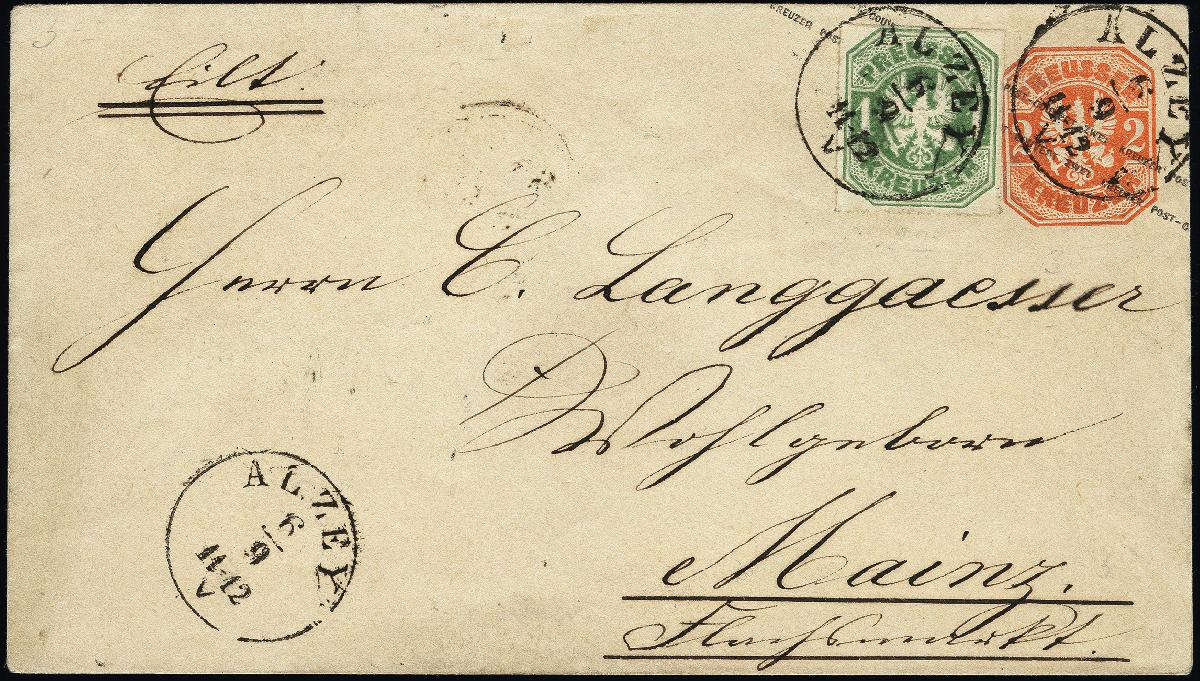 Eilt.
KREUZER POST-COUV
PREUSSEN
1
KREUZER
ALZEY
6/9
11-12
V
PREUSSEN
2 2
KREUZER
ALZEY
6/9
11-12
V
KREUZER POST
POST-C
Herrn C. Langgaesser
Wohlgeborn
Mainz.
Flachsmarkt.
ALZEY
6/9
11-12
V